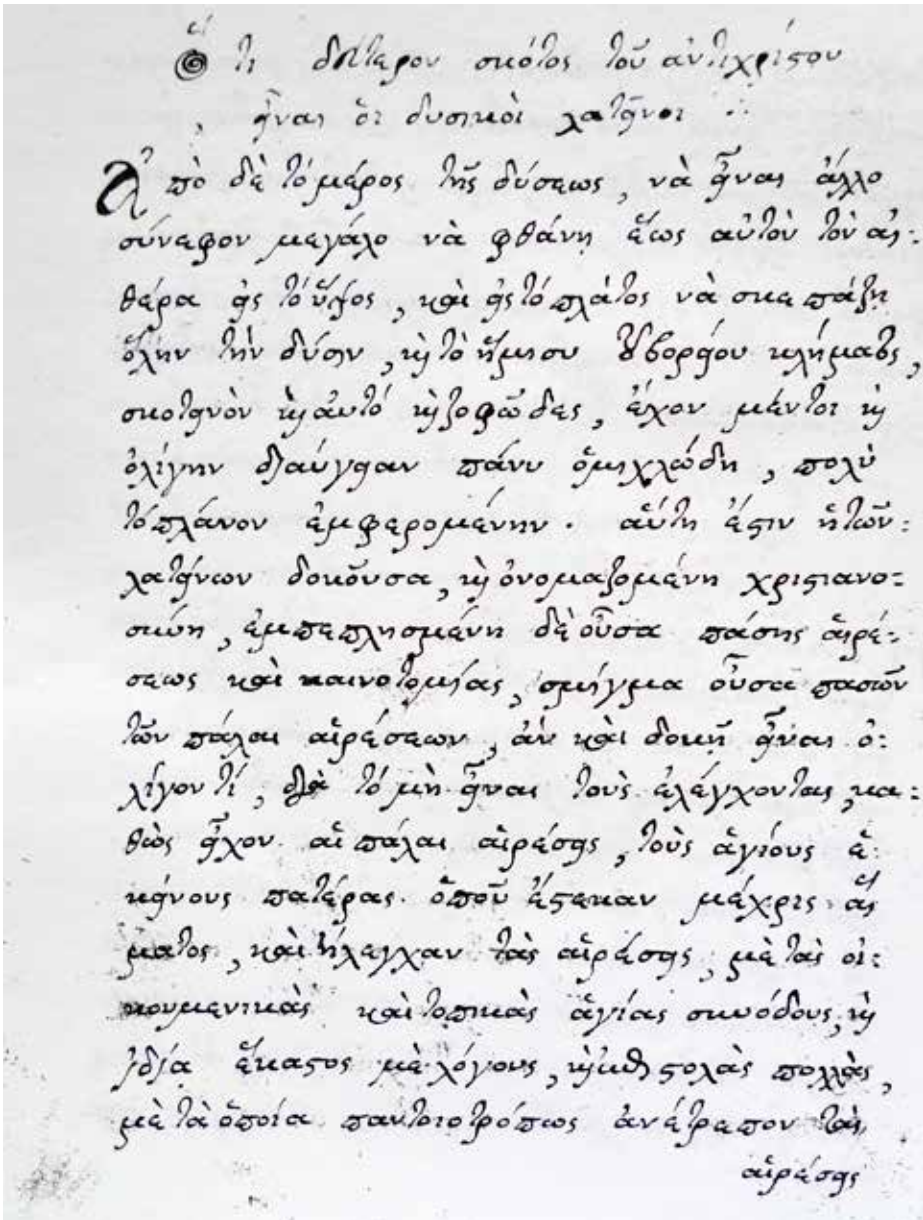 Ὅτι δεύτερον σκότος τοῦ ἀντιχρίστου
εἶναι οἱ δυτικοὶ λατεῖνοι
Ἀπὸ δὲ τὸ μέρος τῆς δύσεως, νὰ εἶναι ἄλλο
σύνεφον μεγάλο νὰ φθάνῃ ἕως αὐτὸν τὸν αἰ:
θέρα εἰς τὸ ὕψος, καὶ εἰς τὸ πλάτος νὰ σκεπάζῃ
ὅλην τὴν δύσιν, καὶ τὸ ἥμισυ τοῦ βορείου κλήματος,
σκοτεινὸν καὶ αὐτό καὶ ζοφῶδες, ἔχον μέντοι καὶ
ὀλίγην διαύγειαν πάνυ ὁμιχλώδη, πολὺ
τὸ πλάνον ἐμφερομένην. αὕτη ἐστιν ἡ τῶν:
λατείνων δοκοῦσα, καὶ ὀνομαζομένη χριστιανο:
σύνη, ἐμπεπλησμένη δὲ οὖσα πάσης αἱρέ:
σεως καὶ καινοτομίας, σμίγμα οὖσα πασῶν
τῶν πάλαι αἱρέσεων, ἂν καὶ δοκῇ εἶναι ὀ:
λίγον τί, διὰ τὸ μὴ εἶναι τοὺς ἐλέγχοντας, κα:
θὼς εἶχον αἱ πάλαι αἱρέσεις, τοὺς ἁγίους ἐ:
κείνους πατέρας ὁποῦ ἔστεκαν μέχρις αἵ
ματος, καὶ ἤλεγχαν τὰς αἱρέσεις, μὲ τὰς οἰ:
κουμενικὰς καὶ τοπικὰς ἁγίας συνόδους, καὶ
ἰδία ἕκαστος μὲ λόγους, καὶ ἐπιστολὰς πολλὰς,
μὲ τὰ ὁποία παντοιοτρόπως ἀνέτρεπον τὰς
αἱρέσεις